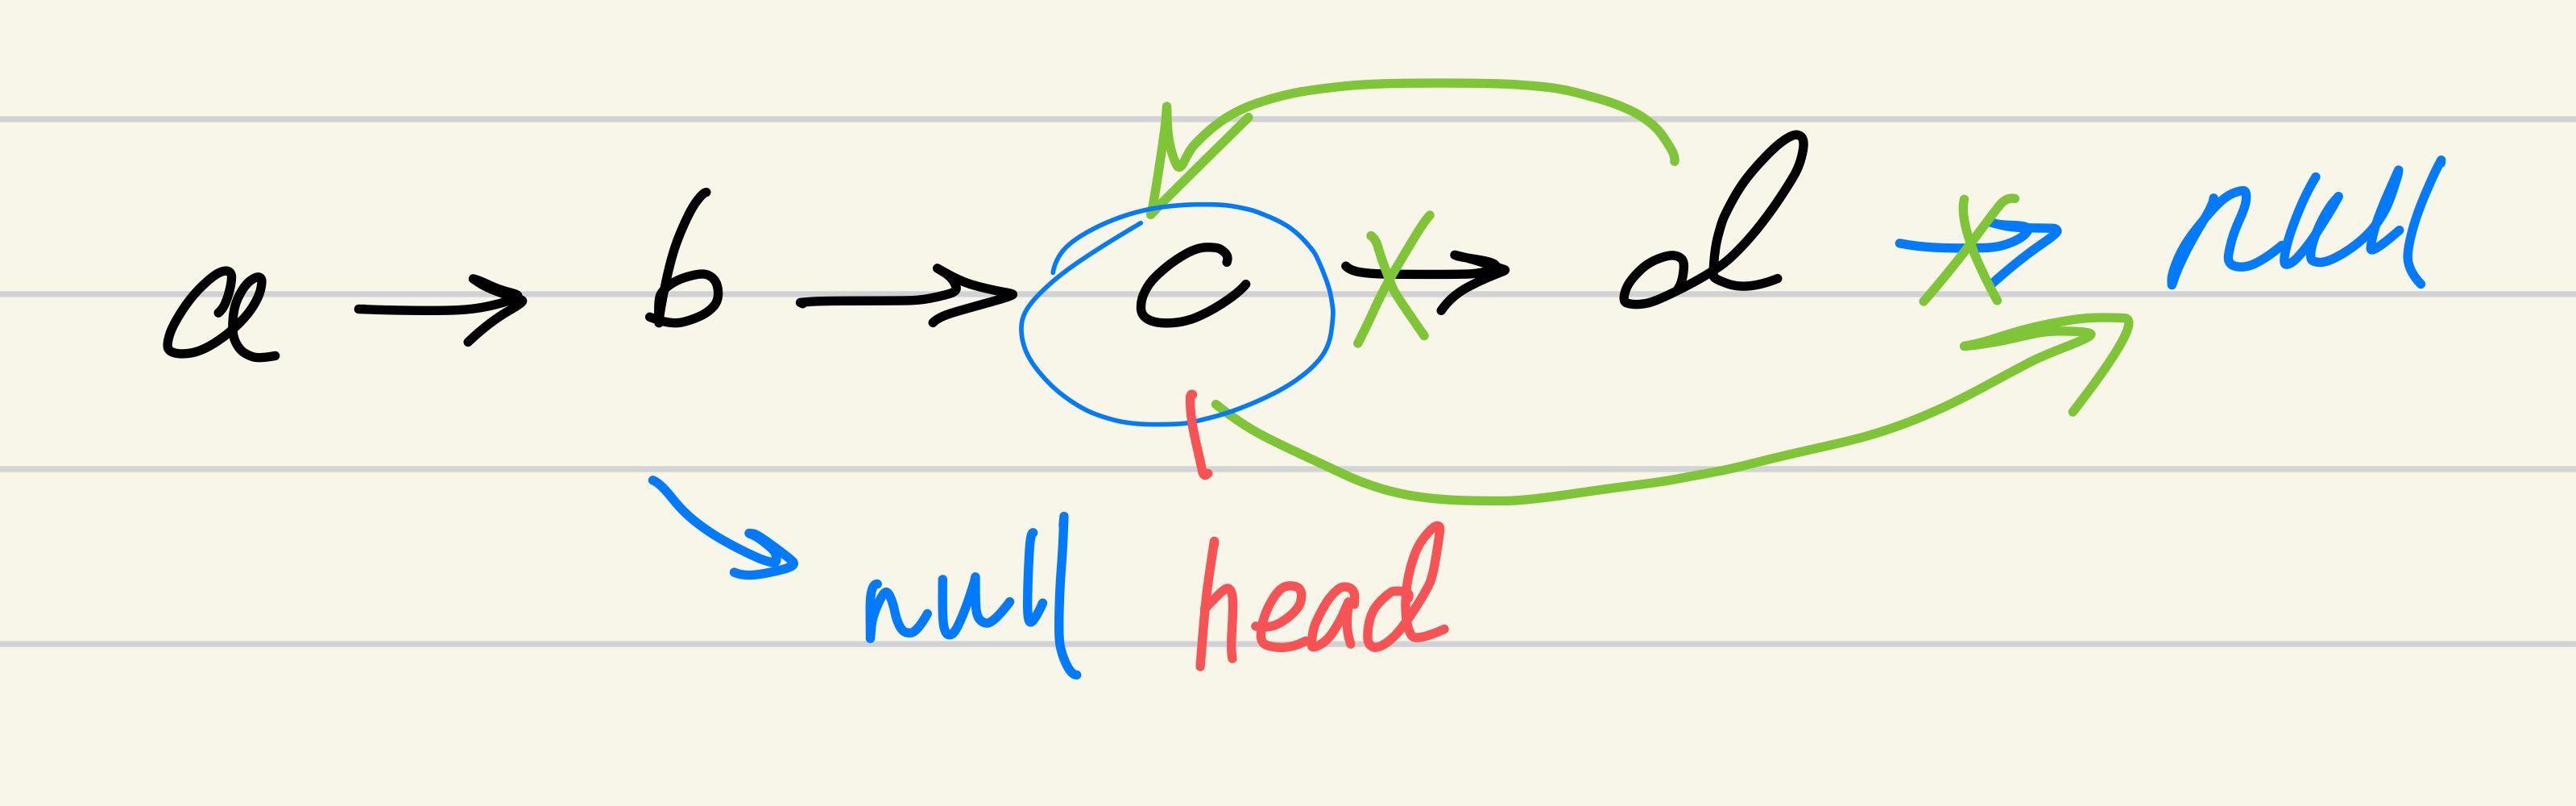 a → b → c → d → null
null head